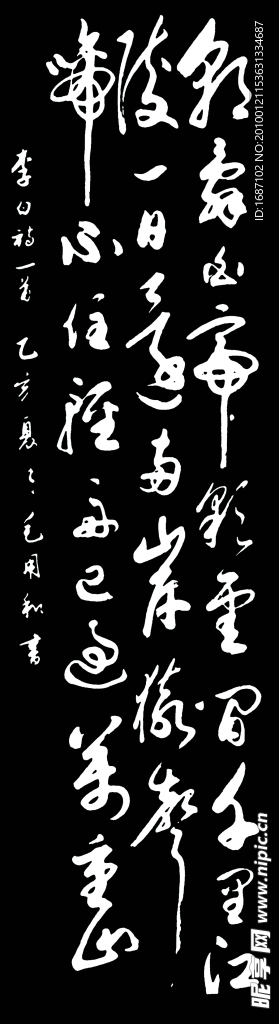 朝辭白帝彩雲間千里江
陵一日還兩岸猿聲
啼不住輕舟已過萬重山
李白詩一首 乙亥夏 毛用和書
ID:1687102 NO:20100121153631334687
昵享网 www.nipic.cn